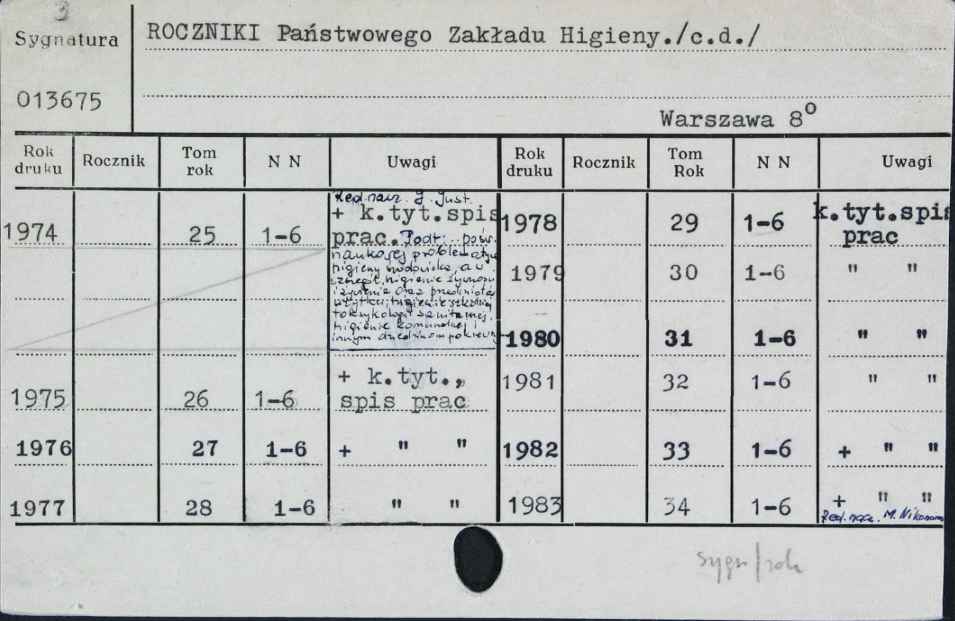 3
Sygnatura
013675
ROCZNIKI Państwowego Zakładu Higieny./c.d./
Warszawa 8°
Rok druku Rocznik Tom rok N N Uwagi Rok druku Rocznik Tom Rok N N Uwagi
Red. nacz. J. Just.
1974 25 1-6 + k.tyt.spis prac.
Podt.: pośw.
naukowej problematyce
higieny środowiska, a w
szczeg. higienie żywności
i żywienia oraz przedmiotów
użytku, higienie szkolnej
toksykologii sanitarnej,
higienie komunalnej i
innym dziedzinom pokrewnym
1975 26 1-6 + k.tyt., spis prac
1976 27 1-6 + " "
1977 28 1-6 " "
1978 29 1-6 k.tyt.spis prac
1979 30 1-6 " "
1980 31 1-6 " "
1981 32 1-6 " "
1982 33 1-6 + " "
1983 34 1-6 + " "
Red. nacz. M. Nikonorow
sygn/rok